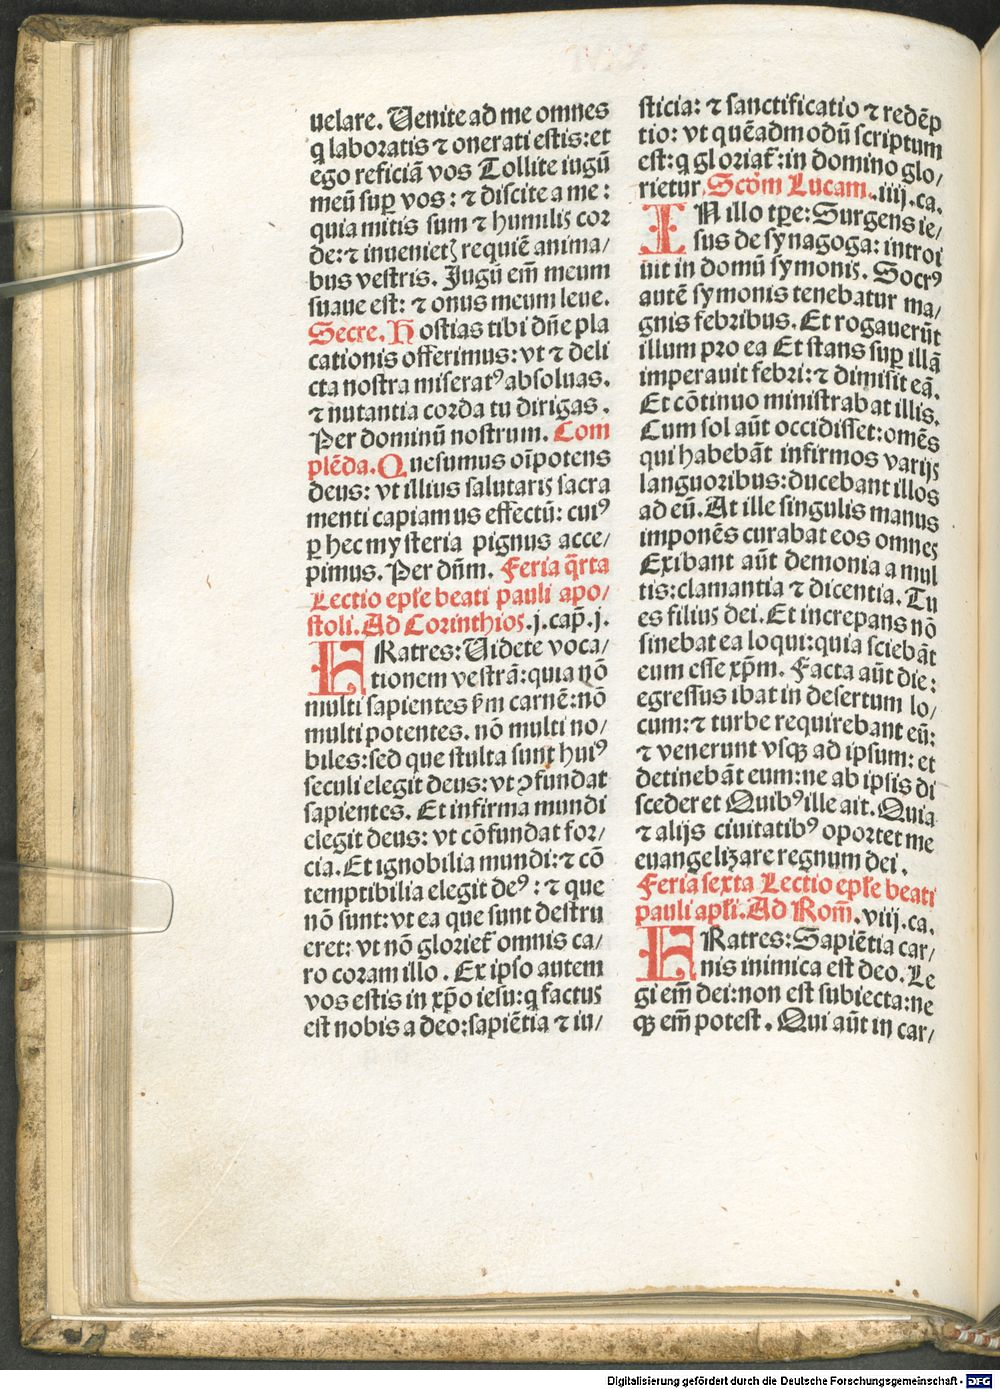 uelare. Uenite ad me omnes
ꝗ laboratis ⁊ onerati estis: et
ego reficiā vos Tollite iugū
meū suꝑ vos: ⁊ discite a me:
quia mitis sum ⁊ humilis cor
de: ⁊ inuenietꝫ requiē anima/
bus vestris. Jugū em̄ meum
suaue est: ⁊ onus meum leue.
Secre. Hostias tibi dn̄e pla
cationis offerimus: vt ⁊ deli
cta nostra miseratꝰ absoluas.
⁊ nutantia corda tu dirigas.
Per dominū nostrum. Com
plēda. Quesumus oīpotens
deus: vt illius salutaris sacra
menti capiamus effectū: cuiꝰ
ꝑ hec mysteria pignus acce/
pimus. Per dn̄m. Feria q̄rta
Lectio epl̄e beati pauli apo/
stoli. Ad Corinthios. j. cap̄. j.
FRatres: Uidete voca/
tionem vestrā: quia nō
multi sapientes ẜm carnē: nō
multi potentes. nō multi no/
biles: sed que stulta sunt huiꝰ
seculi elegit deus: vt ꝯfundat
sapientes. Et infirma mundi
elegit deus: vt cōfundat for/
cia. Et ignobilia mundi: ⁊ cō
temptibilia elegit deꝰ: ⁊ que
nō sunt: vt ea que sunt destru
eret: vt nō glorief̄ omnis ca/
ro coram illo. Ex ipso autem
vos estis in xp̄o iesu: ꝗ factus
est nobis a deo: sapiētia ⁊ iu/
sticia: ⁊ sanctificatio ⁊ redēp
tio: vt quēadmodū scriptum
est: ꝗ gloriat̄: in domino glo/
rietur. Scd̄m Lucam. iiij. ca.
IN illo tꝑe: Surgens ie/
sus de synagoga: introi
uit in domū symonis. Socrꝰ
autē symonis tenebatur ma/
gnis febribus. Et rogauerūt
illum pro ea Et stans suꝑ illā
imperauit febri: ⁊ dimisit eā.
Et cōtinuo ministrabat illis.
Cum sol aūt occidisset: omēs
qui habebāt infirmos varijs
languoribus: ducebant illos
ad eū. At ille singulis manus
imponēs curabat eos omnes
Exibant aūt demonia a mul
tis: clamantia ⁊ dicentia. Tu
es filius dei. Et increpans nō
sinebat ea loqui: quia sciebāt
eum esse xp̄m. Facta aūt die:
egressus ibat in desertum lo/
cum: ⁊ turbe requirebant eū:
⁊ venerunt vsqꝫ ad ipsum: et
detinebāt eum: ne ab ipsis di
scederet Quibꝰ ille ait. Quia
⁊ alijs ciuitatibꝰ oportet me
euangelizare regnum dei.
Feria sexta Lectio epl̄e beati
pauli apl̄i. Ad Rom̄. viij. ca.
FRatres: Sapiētia car/
nis inimica est deo. Le
gi em̄ dei: non est subiecta: ne
qꝫ em̄ potest. Qui aūt in car/
Digitalisierung gefördert durch die Deutsche Forschungsgemeinschaft - DFG